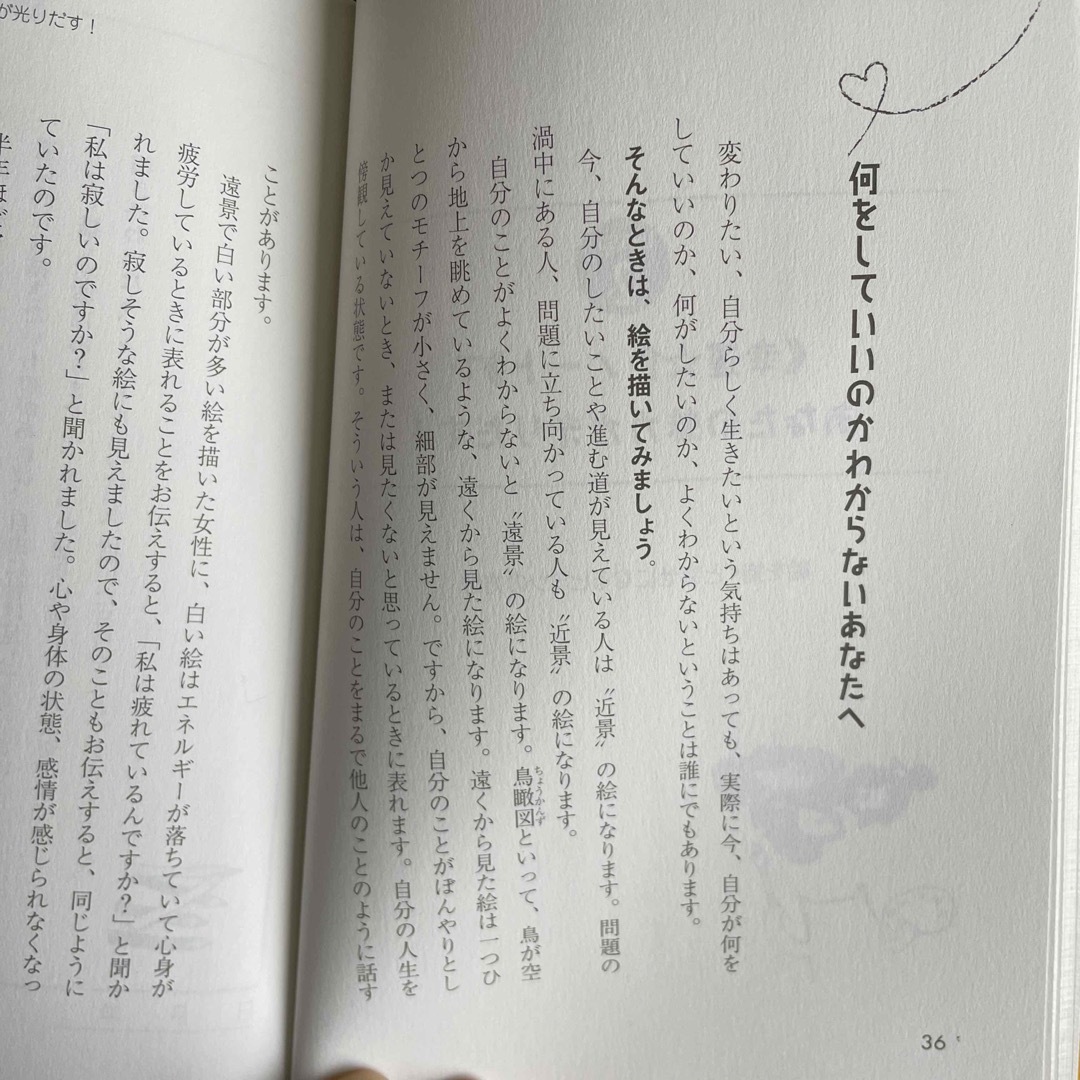 何をしていいのかわからないあなたへ
変わりたい、自分らしく生きたいという気持ちはあっても、実際に今、自分が何を
していいのか、何がしたいのか、よくわからないということは誰にでもあります。
そんなときは、絵を描いてみましょう。
今、自分のしたいことや進む道が見えている人は〝近景〟の絵になります。問題の
渦中にある人、問題に立ち向かっている人も〝近景〟の絵になります。
自分のことがよくわからないと〝遠景〟の絵になります。鳥瞰図といって、鳥が空
ちょうかんず
から地上を眺めているような、遠くから見た絵になります。遠くから見た絵は一つひ
とつのモチーフが小さく、細部が見えません。ですから、自分のことがぼんやりとし
か見えていないとき、または見たくないと思っているときに表れます。自分の人生を
傍観している状態です。そういう人は、自分のことをまるで他人のことのように話す
36
が光りだす！
ことがあります。
遠景で白い部分が多い絵を描いた女性に、白い絵はエネルギーが落ちていて心身が
疲労しているときに表れることをお伝えすると、「私は疲れているんですか？」と聞か
れました。寂しそうな絵にも見えましたので、そのこともお伝えすると、同じように
「私は寂しいのですか？」と聞かれました。心や身体の状態、感情が感じられなくなっ
ていたのです。
半年ほど、